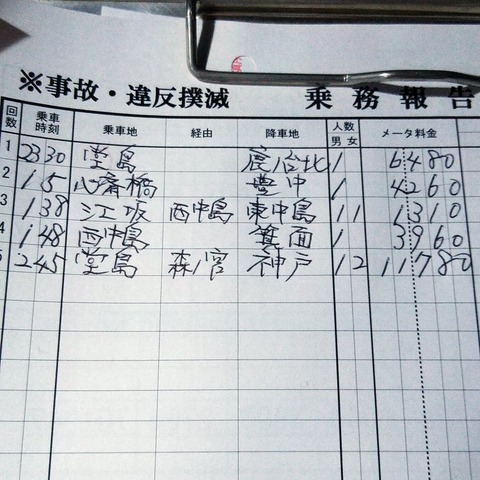 ※事故・違反撲滅 乗務報告
回数 乗車時刻 乗車地 経由 降車地 人数 男 女 メータ料金
1 2330 堂島 鹿台北 1 6480
2 15 心斎橋 豊中 1 4260
3 138 江坂 西中島 東中島 1 1 1310
4 148 西中島 箕面 1 3960
5 245 堂島 森ノ宮 神戸 1 2 11780